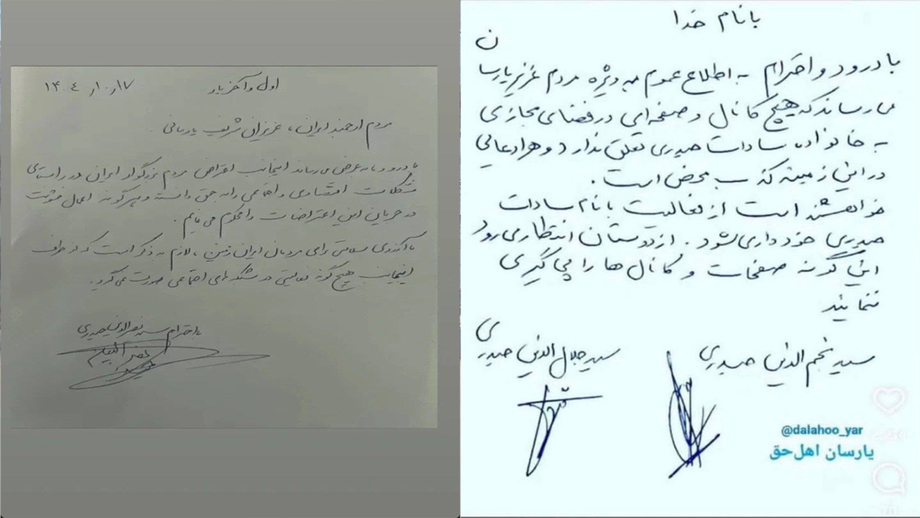 اول و آخر یار
۱۴۰۴/۱۰/۱۷
مردم ارجمند ایران، عزیزان شریف یارسانی
با درود، به عرض می‌رساند اینجانب اعتراض مردم بزرگوار ایران در راستای
مشکلات اقتصادی و اجتماعی را به حق دانسته و هرگونه اعمال خشونت
در جریان این اعتراضات را محکوم می‌نمایم.
با آرزوی سلامتی برای مردمان ایران زمین، لازم به ذکر است که از طرف
اینجانب هیچ گونه فعالیتی در شبکه‌های اجتماعی صورت نمی‌گیرد.
با احترام سید نصرالدین حیدری
با نام خدا
با درود و احترام به اطلاع عموم به ویژه مردم عزیز یارسان
می رساند که هیچ کانال و صفحه‌ای در فضای مجازی
به خانواده سادات حیدری تعلق ندارد و هر ادعایی
در این زمینه کذب محض است.
خواهشمند است از فعالیت با نام سادات
حیدری خودداری شود. از دوستان انتظار می رود
این گونه صفحات و کانال ها را پی گیری
ننمایند
سید نجم الدین حیدری
سید جلال الدین حیدری
@dalahoo_yar
یارسان اهل‌حق